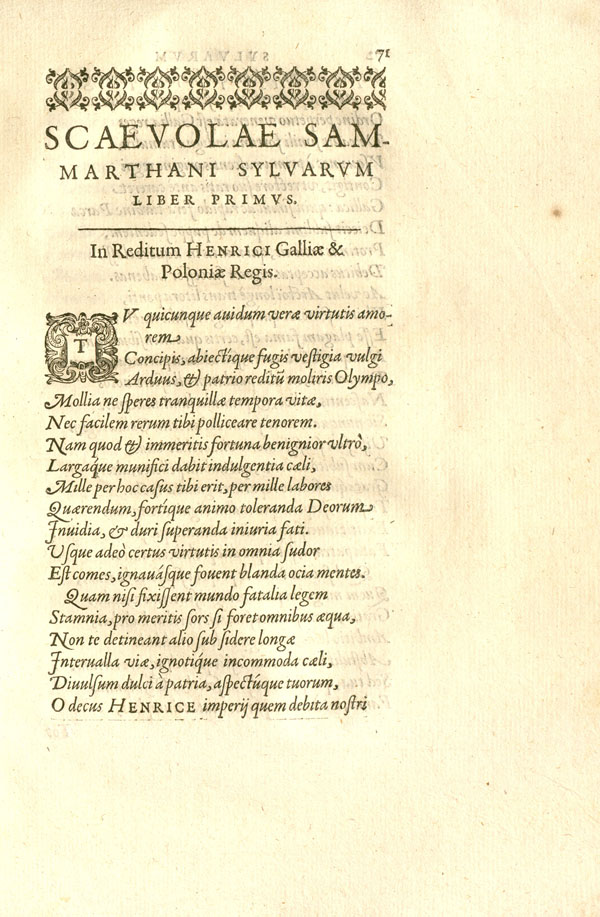 71
SCAEVOLAE SAM-
MARTHANI SYLVARVM
LIBER PRIMVS.
In Reditum HENRICI Galliæ &
Poloniæ Regis.
TV quicunque auidum veræ virtutis amo-
rem
Concipis, abiectíque fugis vestigia vulgi
Arduus, & patrio reditũ moliris Olympo,
Mollia ne speres tranquillæ tempora vitæ,
Nec facilem rerum tibi polliceare tenorem.
Nam quod & immeritis fortuna benignior vltrò,
Largáque munifici dabit indulgentia cæli,
Mille per hoc casus tibi erit, per mille labores
Quærendum, fortíque animo toleranda Deorum
Inuidia, & duri superanda iniuria fati.
Vsque adeò certus virtutis in omnia sudor
Est comes, ignauásque fouent blanda ocia mentes.
Quam nisi fixissent mundo fatalia legem
Stamnia, pro meritis sors si foret omnibus æqua,
Non te detineant alio sub sidere longæ
Interualla viæ, ignotíque incommoda cæli,
Diuulsum dulci à patria, aspectúque tuorum,
O decus HENRICE imperij quem debita nostri